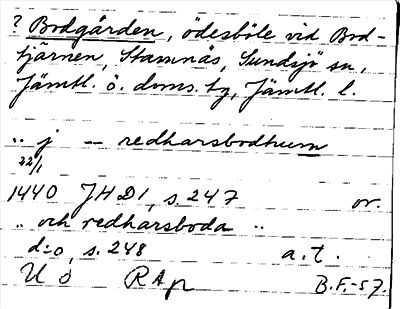 ? Bodgården, ödesböle vid Bod-
tjärnen, Stamnäs, Sundsjö sn,
Jämtl. ö. doms. tg, Jämtl. l.
.. j — redharsbodhum
22/1
1440 JHD1, s. 247 or.
.. och redharsboda ..
d:o, s. 248 a.t.
U ö RAp B.F.-57.